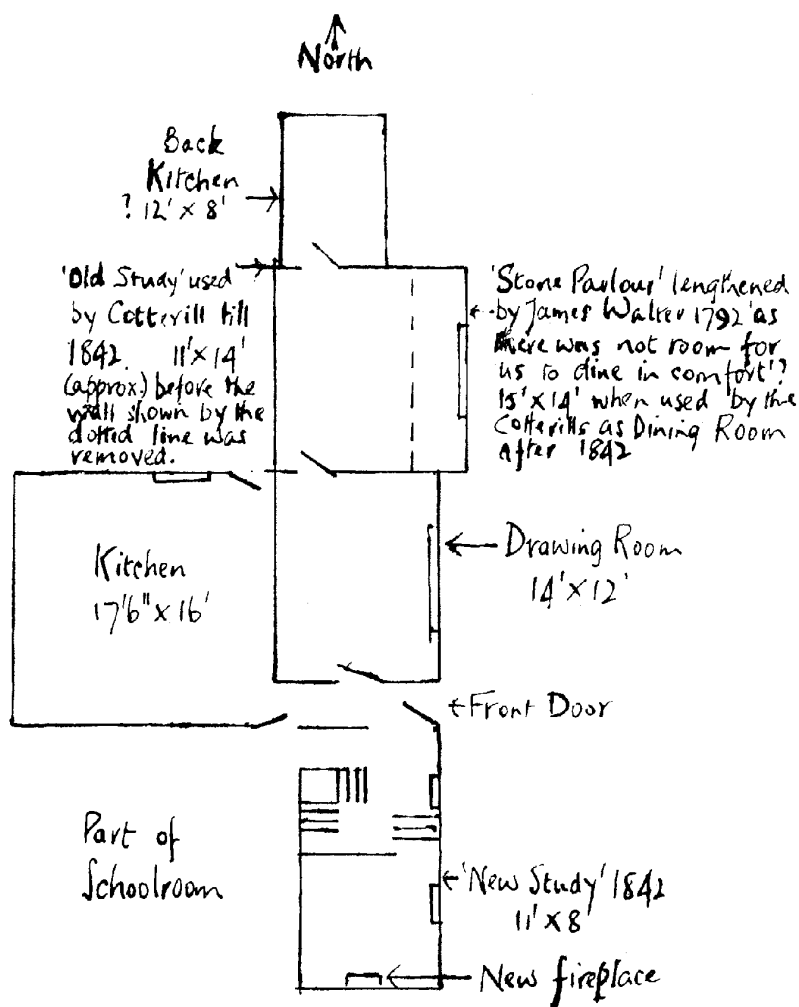 North
Back
Kitchen
? 12' × 8'
'Old Study' used
by Cotterill till
1842. 11' × 14'
(approx.) before the
wall shown by the
dotted line was
removed.
'Stone Parlour' lengthened
by James Walter 1792 'as
there was not room for
us to dine in comfort'?
15' × 14' when used by the
Cotterills as Dining Room
After 1842
Kitchen
17'6" × 16'
Drawing Room
14' × 12'
Front Door
Part of
Schoolroom
'New Study' 1842
11' × 8'
New fireplace